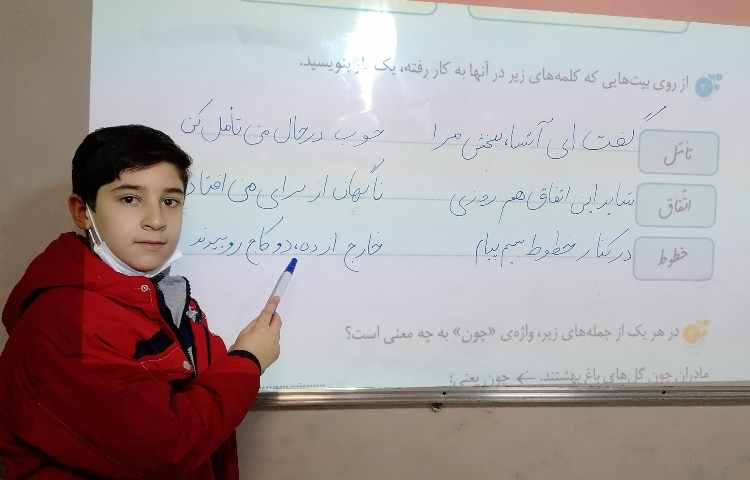 از روی بیت‌هایی که کلمه‌های زیر در آنها به کار رفته، یک بار بنویسید.
تأمّل گفت ای آشنا، ببخش مرا خوب درحال من تأمل کن
اتّفاق شاید این اتفاق هم روزی ناگهان از برای من افتاد
خطوط درکنار خطوط سیم پیام خارج از ده، دو کاج روییدند
در هر یک از جمله‌های زیر، واژه‌ی «چون» به چه معنی است؟
مادران چون گل‌های باغ بهشتند. ← چون یعنی: